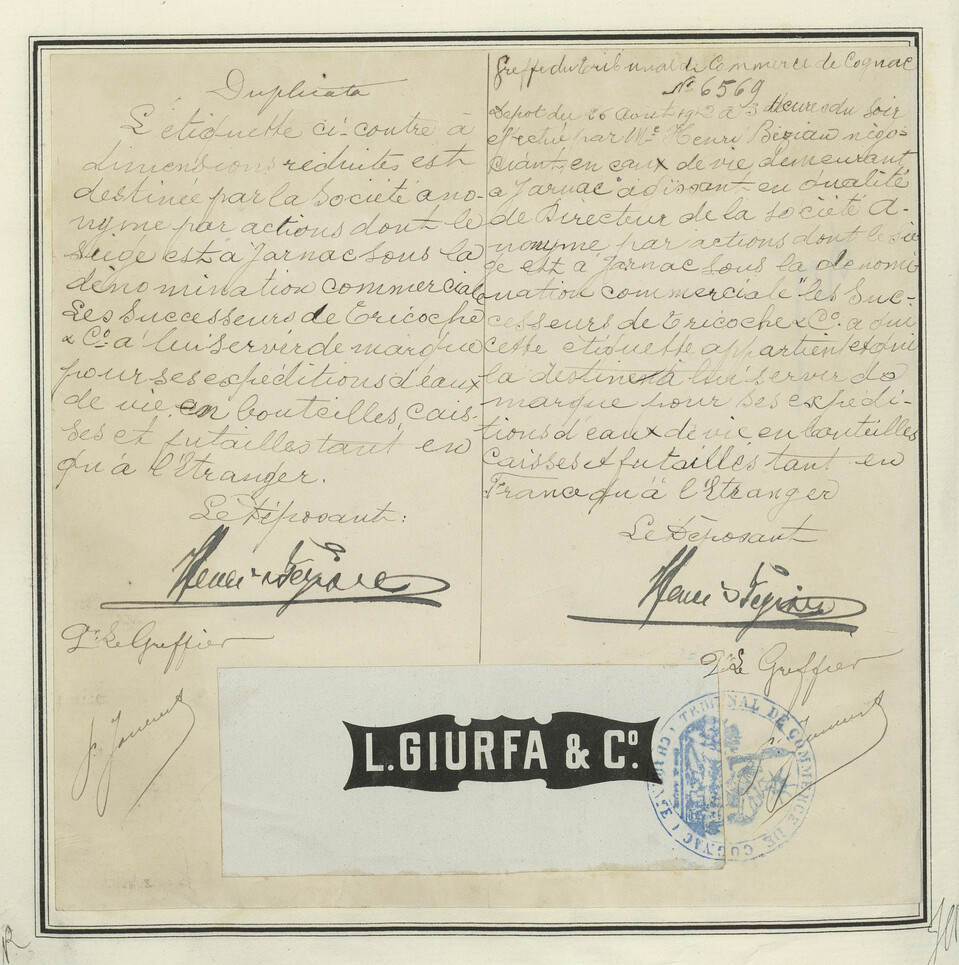 Duplicata
L'étiquette ci-contre à
dimensions réduites est
destinée par la Société ano-
nyme par actions dont le
siège est à Jarnac sous la
dénomination commerciale
Les Successeurs de Tricoche
& Co. à leur servir de marque
pour ses expéditions d'eaux
de vie, en bouteilles, cais-
ses et futailles tant en
qu'à l'Etranger.
Le Déposant:
Greffe du Tribunal de Commerce de Cognac
No 6569
Dépot du 26 Avril 1912 à 3 Heures du Soir
éffectué par Mr. Henri Bézian négo-
ciant, en eaux de vie demeurant
à Jarnac agissant en qualité
de Directeur de la Société A-
nonyme par actions dont le siè-
ge est à Jarnac sous la dénomi-
nation commerciale "les Suc-
cesseurs de Tricoche & Co. a qui
cette étiquette appartient et qui
la destinent à lui servir de
marque pour ses expédi-
tions d'eaux de vie, en bouteilles
Caisses & futailles, tant en
France qu'à l'Etranger
Le Déposant
Pr Le Greffier
Pr Le Greffier
L. GIURFA & Co.
TRIBUNAL DE COMMERCE DE COGNAC